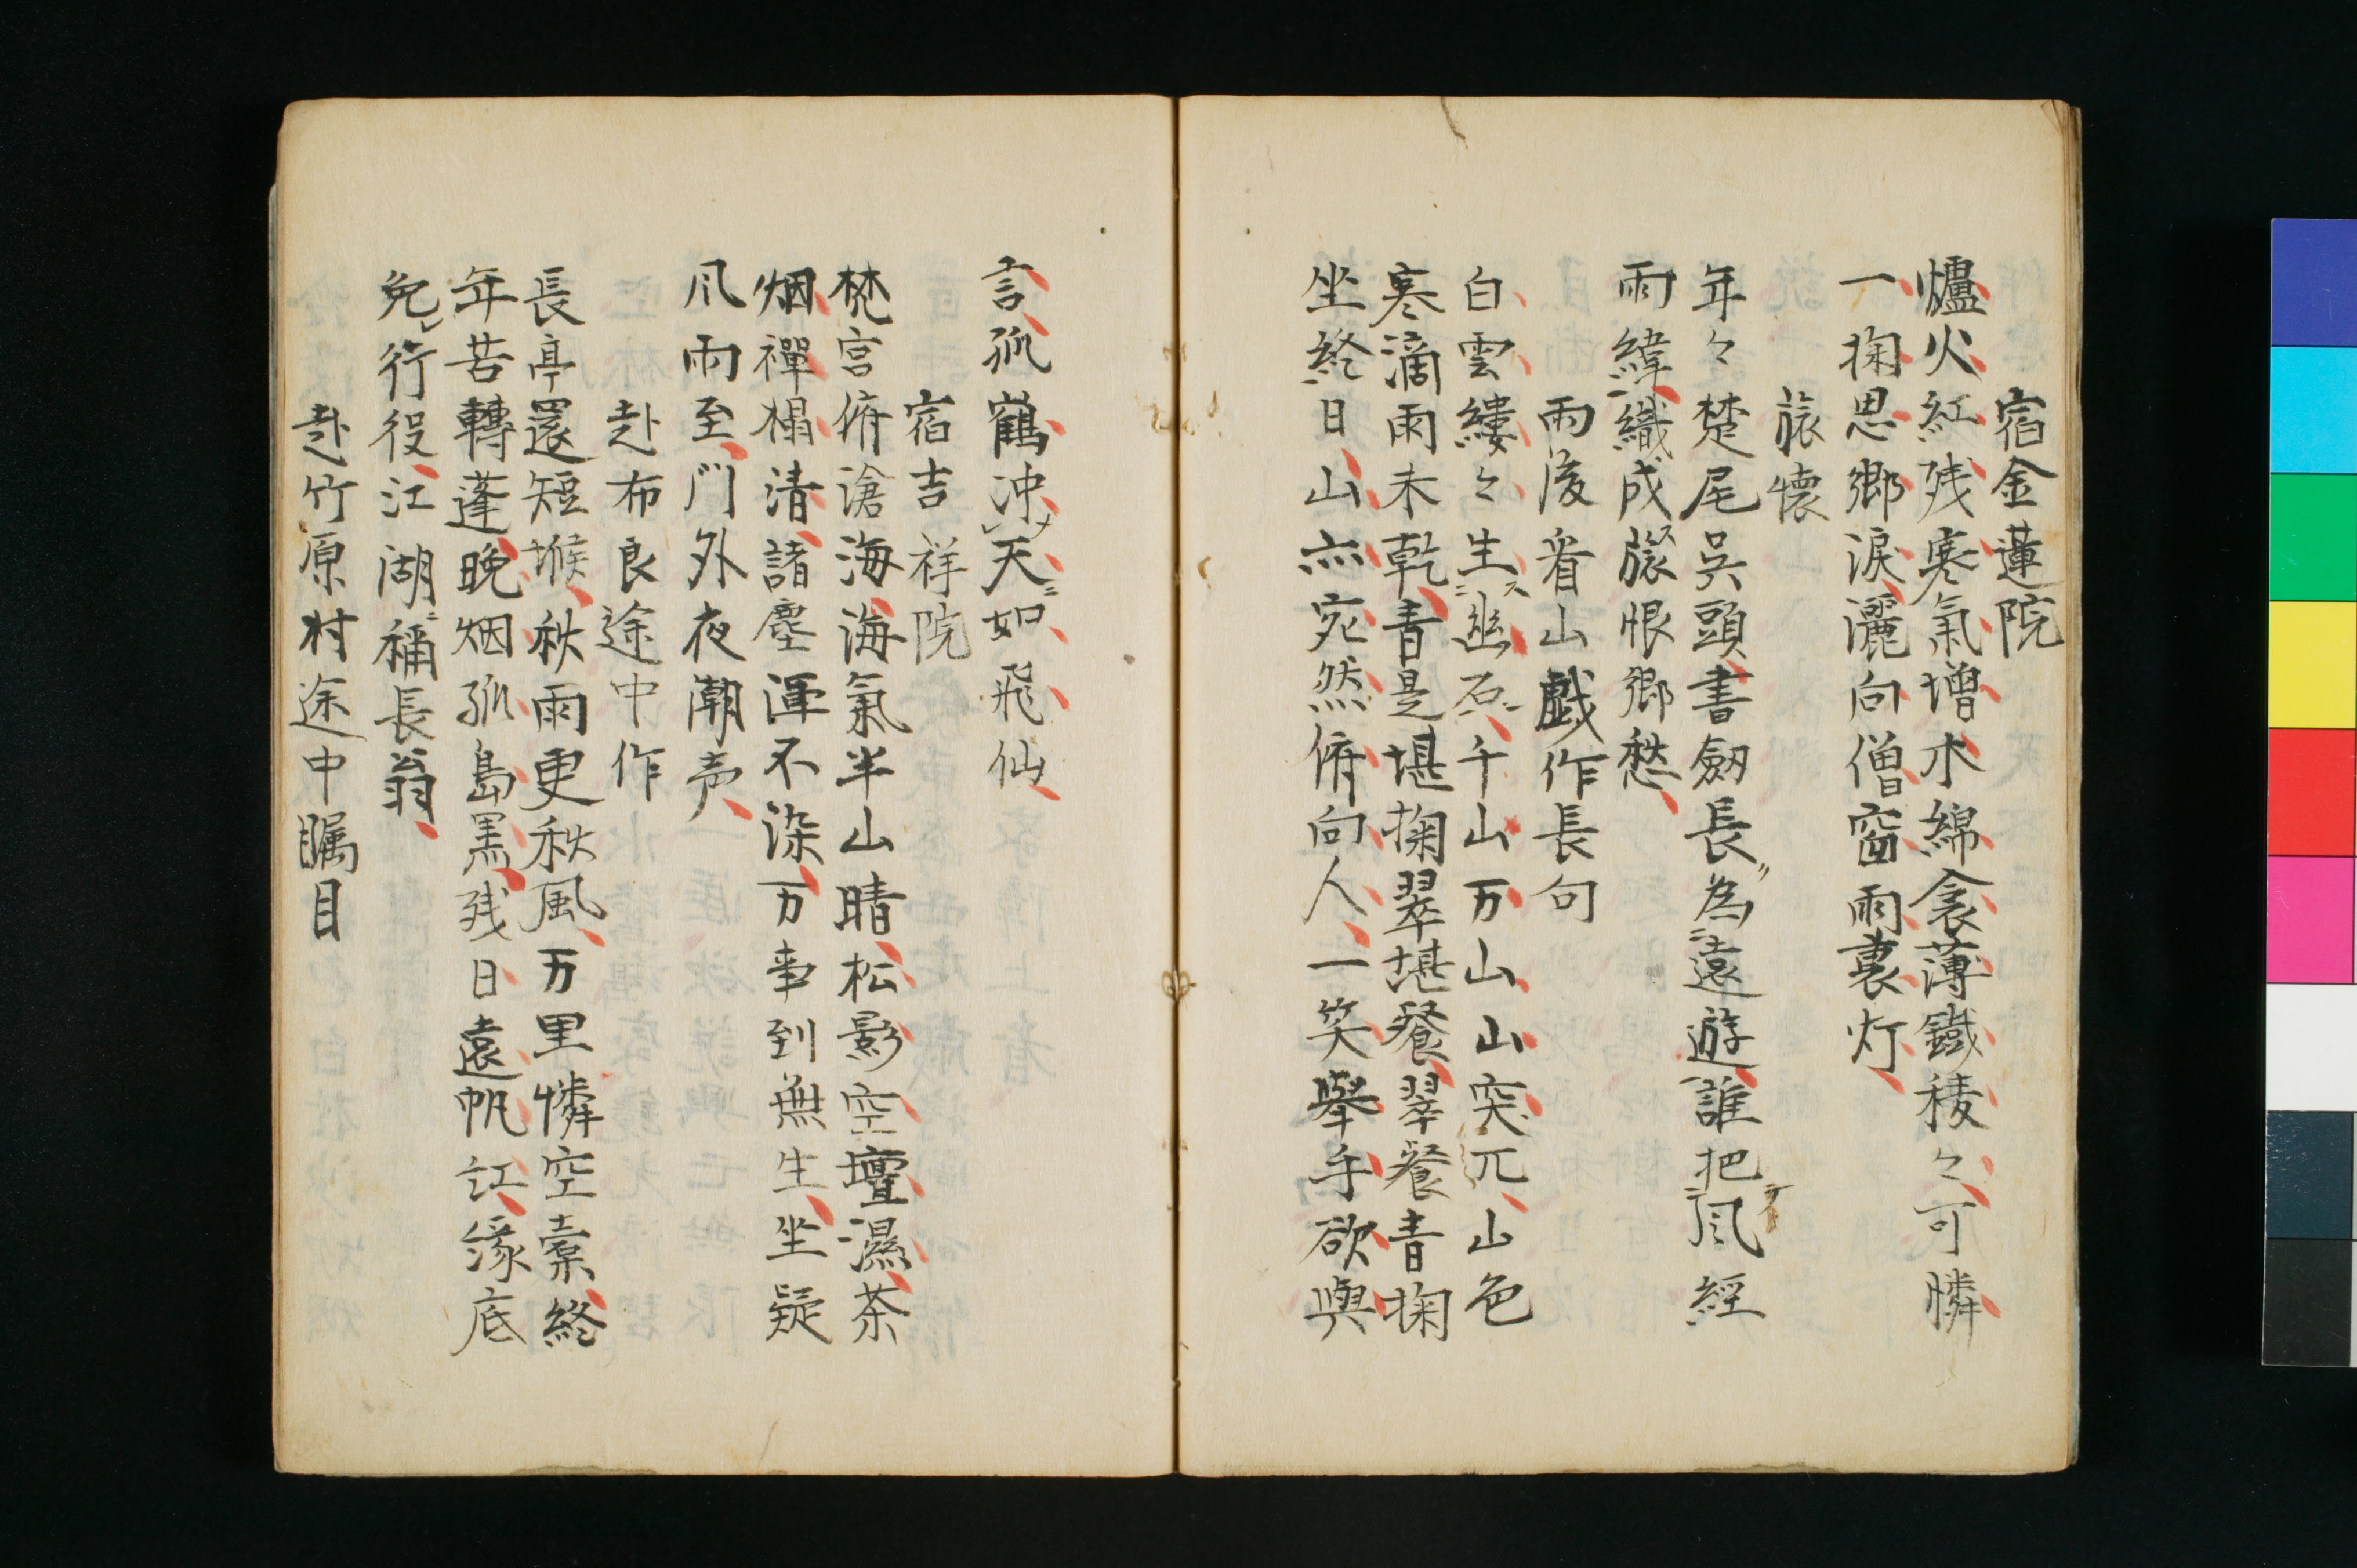 宿金蓮院
爐火紅残寒氣増木綿衾薄鐵稜々可憐
一掬思郷涙灑向僧窗雨裏灯
旅懐
年々楚尾呉頭書劔長為遠遊誰把風經
雨緯織成旅恨郷愁
雨後看山戯作長句
白雲縷々生幽石千山万山山突兀山色
寒滴雨未乾青是堪掬翠堪餐翠餐青掬
坐終日山亦宛然俯向人一笑擧手欲與
言孤鶴冲天如飛仙
宿吉祥院
梵宮俯滄海海氣半山晴松影空壇濕茶
烟禪榻清諸塵渾不染万事到無生坐疑
风雨至門外夜潮声
赴布良途中作
長亭還短堠秋雨更秋風万里憐空橐終
年苦轉蓬晩烟孤島黒残日遠帆江縁底
免行役江湖稱長翁
赴竹原村途中矚目